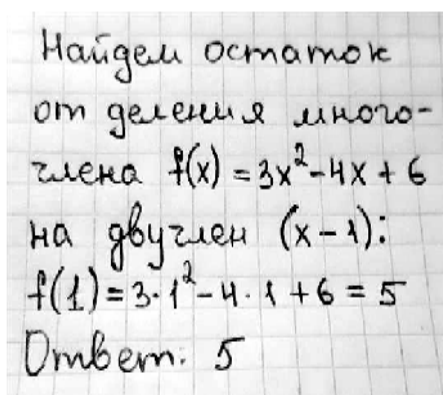 Найдем остаток
от деления много-
члена f(x) = 3x² - 4x + 6
на двучлен (x - 1):
f(1) = 3 · 1² - 4 · 1 + 6 = 5
Ответ: 5